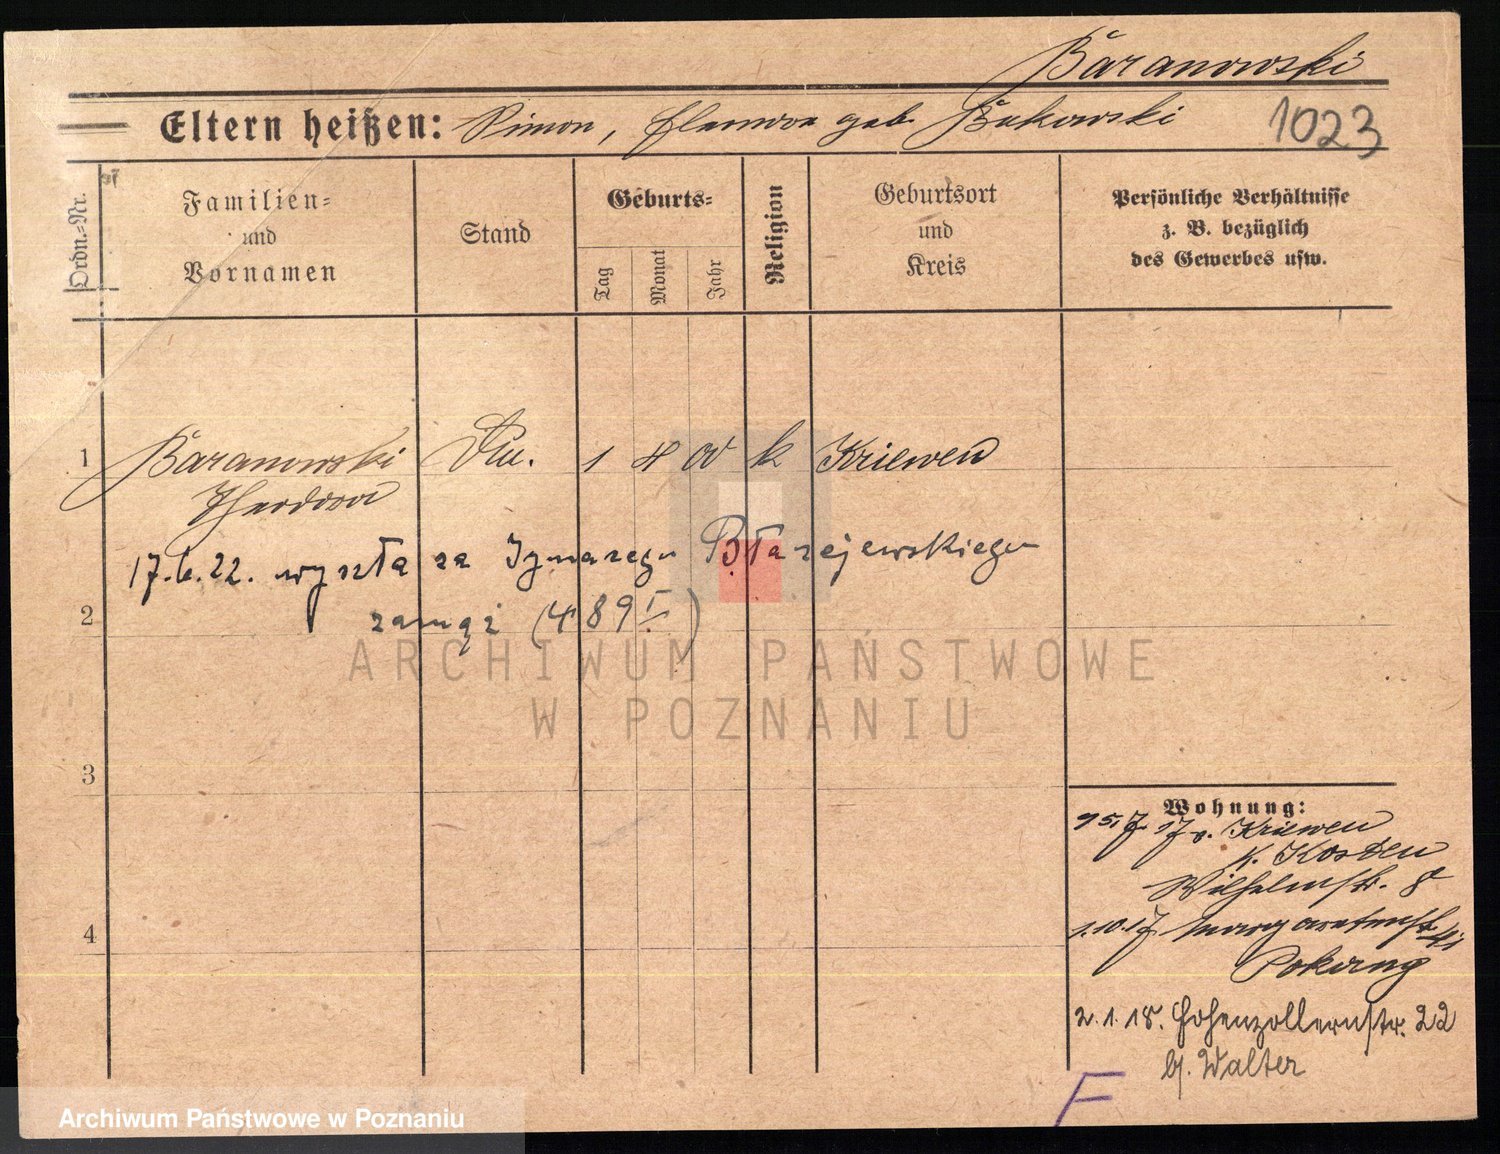 Baranowski
Eltern heißen: Simon, geb. Bukowski
1023
Ordn.-Nr.
Familien-
und
Vornamen
Stand
Geburts-
Tag
Monat
Jahr
Religion
Geburtsort
und
Kreis
Persönliche Verhältnisse
z. B. bezüglich
des Gewerbes usw.
1 Baranowski 1 4 00 k Kriewen
Theodosia
17.6.22. wyszła za Ignacego Błażejewskiego
2 zamąż (489 I)
ARCHIWUM PAŃSTWOWE
W POZNANIU
3
Wohnung:
v. Kriewen
K. Kosten
Wilhelmstr. 8
4 1.10.17 Margaretenstr.
2.1.18. Hohenzollernstr. 22
b. Walter
F
Archiwum Państwowe w Poznaniu